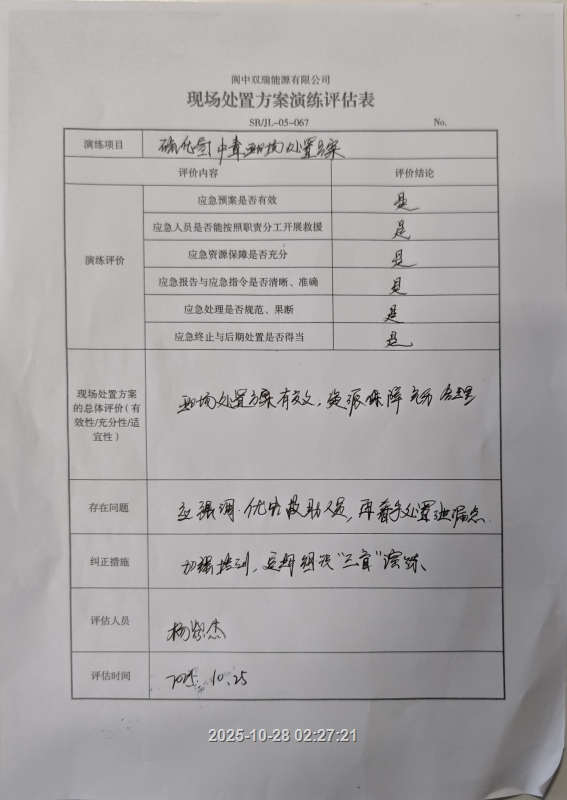 阆中双瑞能源有限公司
现场处置方案演练评估表
SR/JL-05-067 No.
演练项目 硫化氢中毒现场处置方案
评价内容 评价结论
演练评价
应急预案是否有效 是
应急人员是否能按照职责分工开展救援 是
应急资源保障是否充分 是
应急报告与应急指令是否清晰、准确 是
应急处理是否规范、果断 是
应急终止与后期处置是否得当 是
现场处置方案
的总体评价（有
效性/充分性/适
宜性）
现场处置方案有效，资源保障充分合理
存在问题 应强调优先救助人员，再着手处置泄漏点
纠正措施 加强培训，定期组织“三盲”演练、
评估人员 杨
杰
评估时间 2025.10.25
2025-10-28 02:27:21